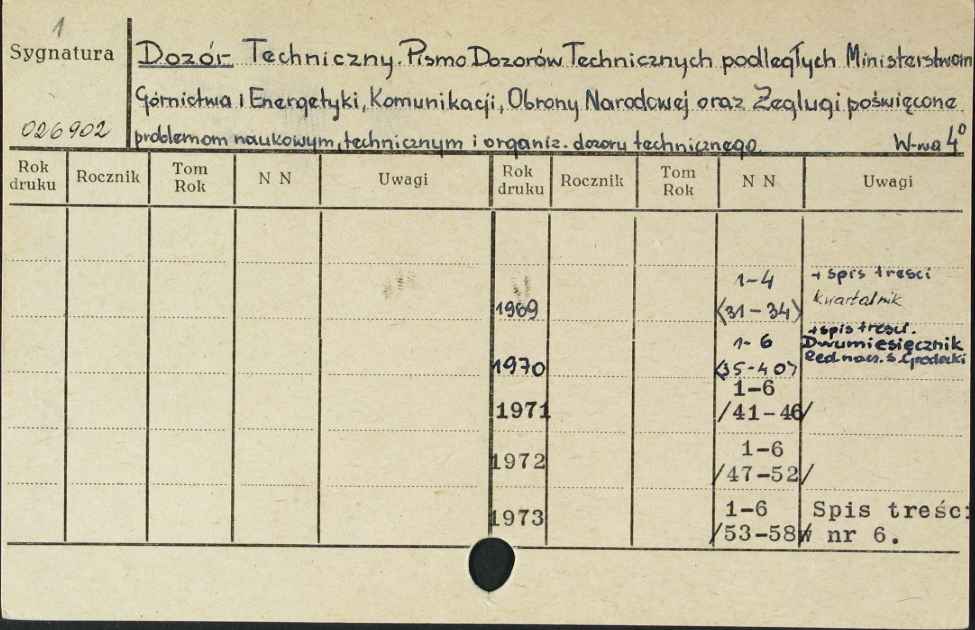 1
Sygnatura
Dozór Techniczny. Pismo Dozorów Technicznych podległych Ministerstwom
Górnictwa i Energetyki, Komunikacji, Obrony Narodowej oraz Żeglugi poświęcone
026902
problemom naukowym, technicznym i organiz. dozoru technicznego. W-wa 4°
Rok druku Rocznik Tom Rok N N Uwagi Rok druku Rocznik Tom Rok N N Uwagi
1-4 + spis treści
1969 (31-34) kwartalnik
1-6 + spis treści.
Dwumiesięcznik
1970 (35-40) Red. nacz. S.
1-6
1971 /41-46/
1-6
1972 /47-52/
1-6 Spis treści
1973 /53-58/ w nr 6.